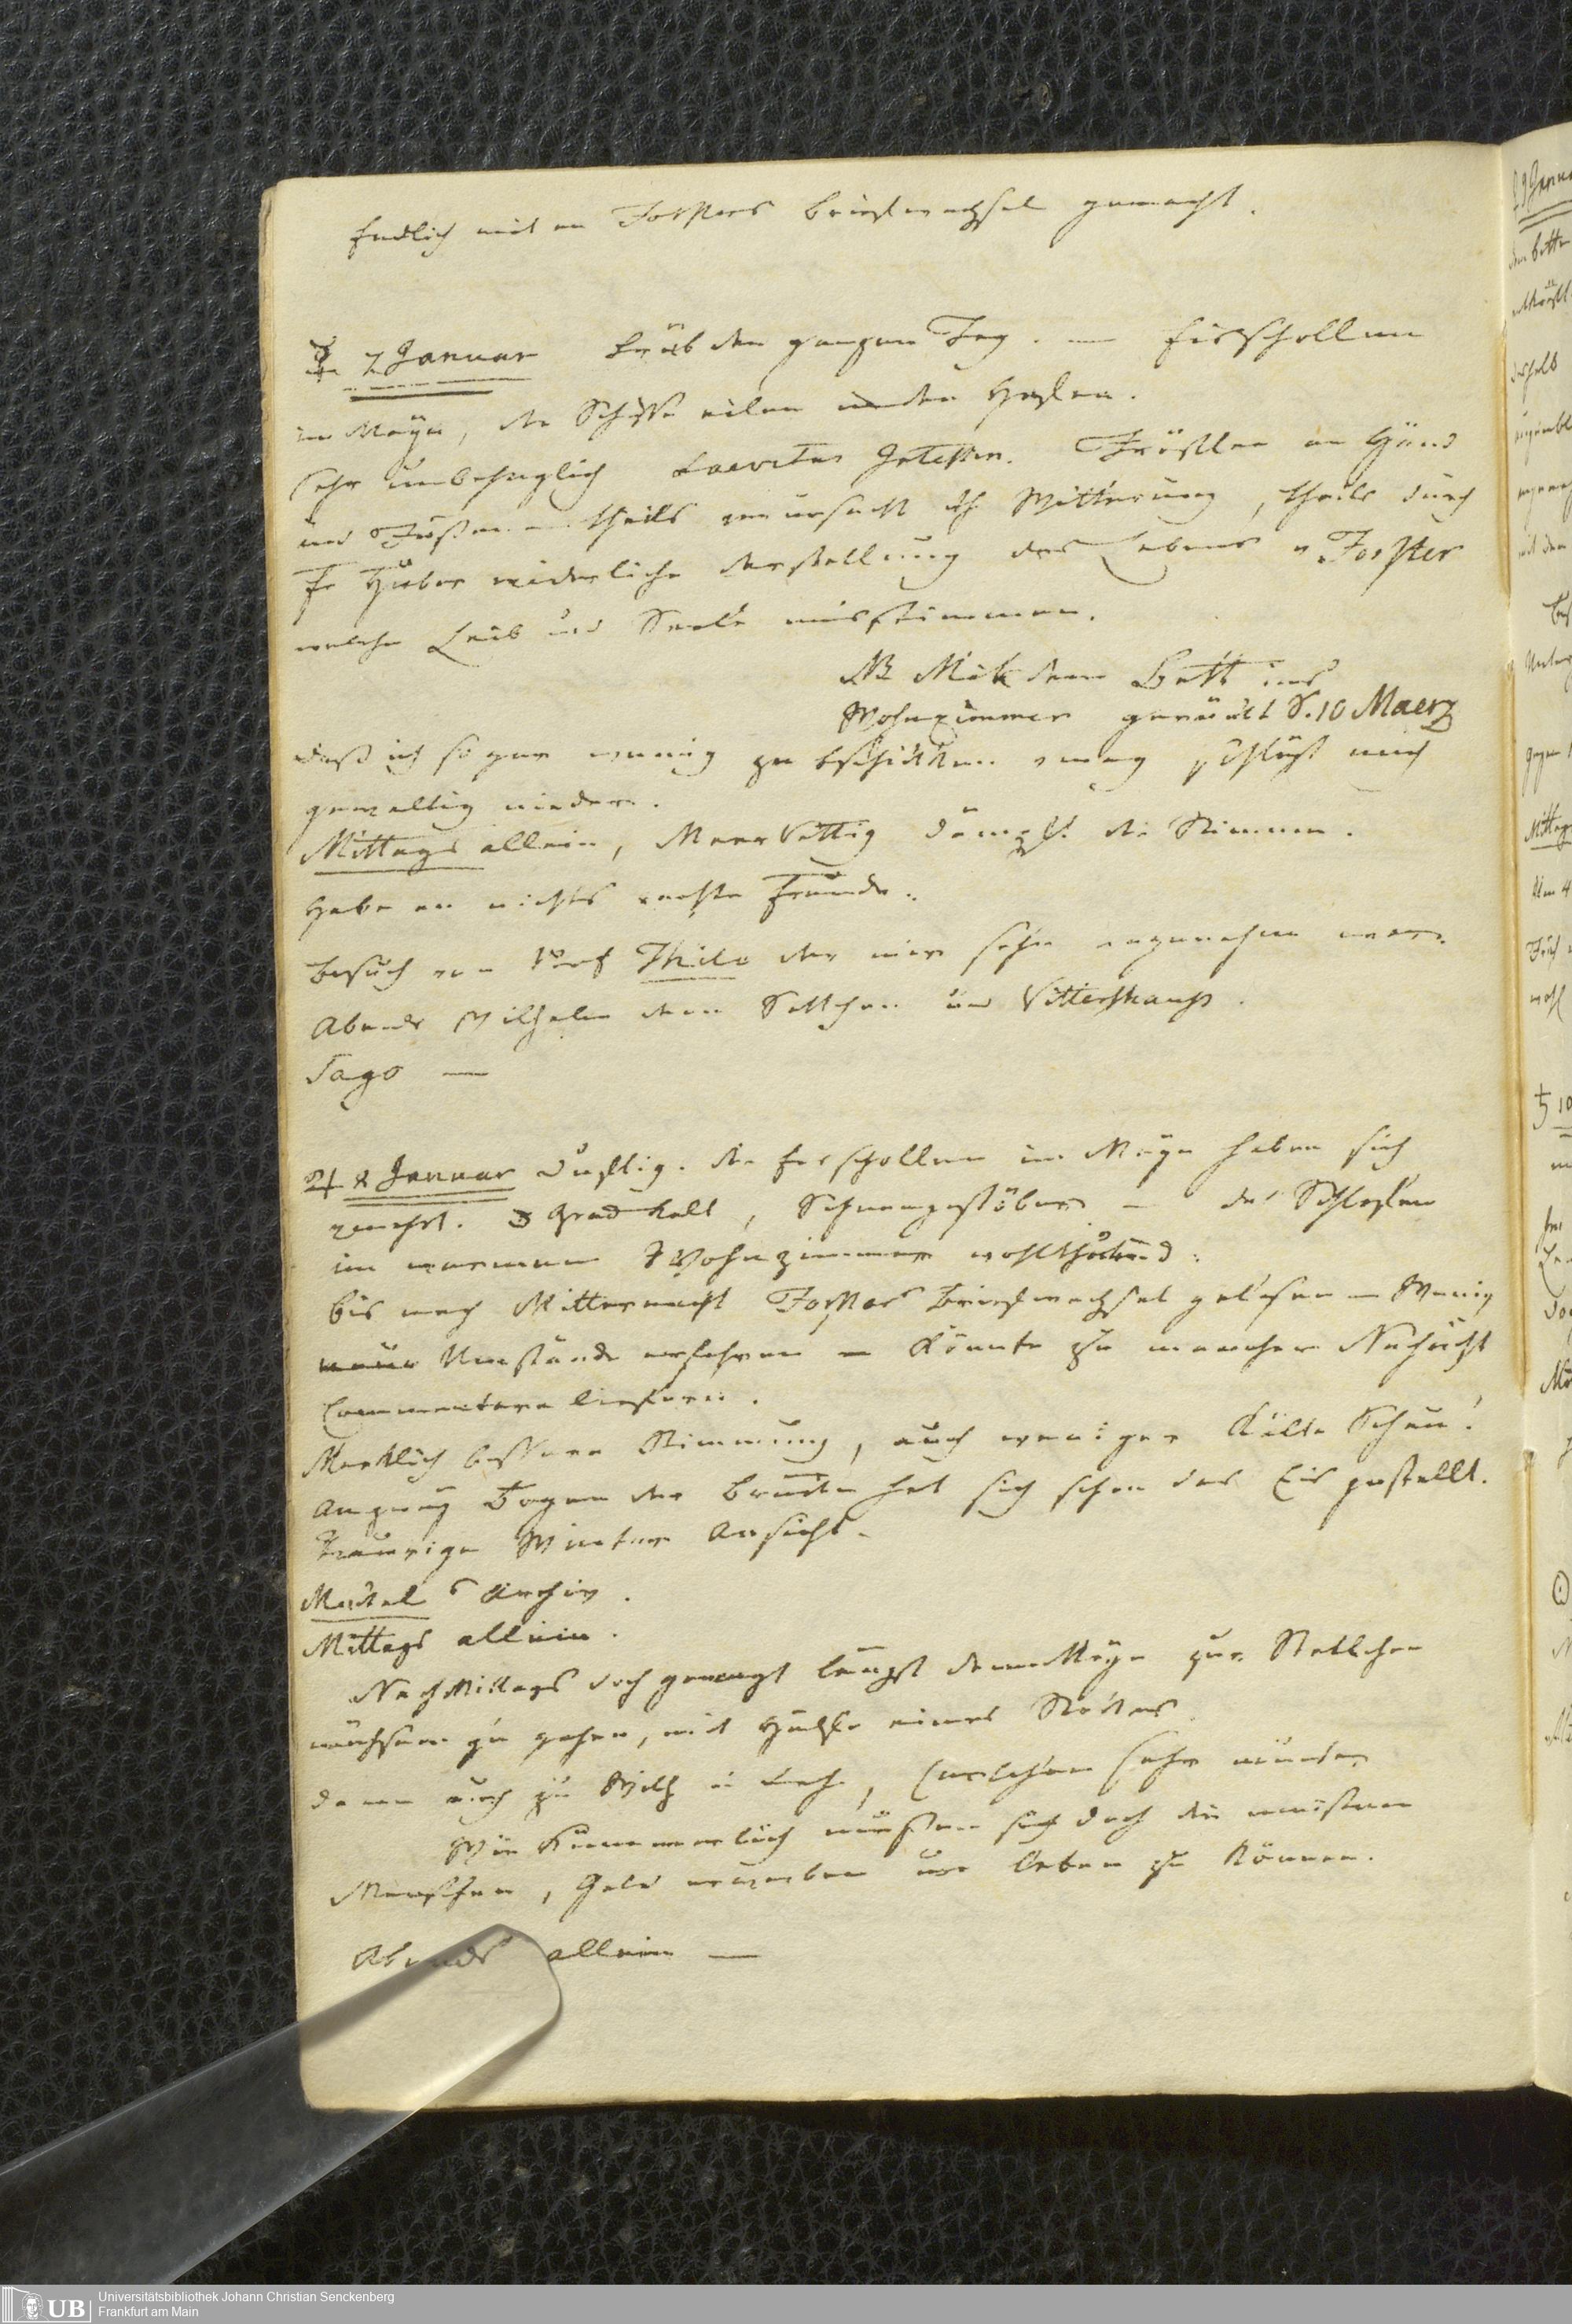 Endlich mit an Forsters Briefwechsel gemacht.
☿ 7 Januar Trüb den ganzen Tag. — Eisschollen
im Mayn, die Schiffe eilen in den Hafen.
Sehr unbehaglich Frösteln an Händ
und Füßen — theils verursacht dh Witterung, theils durch
Fr Huber widerliche Darstellung des Lebens v Forster
welche Leib und Seele misstimmen.
NB Mit dem Bett ins
Wohnzimmer gerückt d. 10 Maerz
daß ich so gar wenig zu beschicken vermag schlägt mich
gewaltig nieder.
Mittags allein, MeerRettig dämpft die Stimme.
Habe an nichts rechte Freude.
Besuch von Prof Thilo der mir sehr angenehm war.
Abends Wilhelm dem Settchen und Vittershauß.
Sago —
♃ 8 Januar Duftig. die Eisschollen im Mayn haben sich
gemehrt. 3 Grad Kalt, Schneegestöber — das Schlafen
im warmen Wohnzimmer wohlthuend.
bis nach Mitternacht Forsters Briefwechsel gelesen — Wenig
neue Umstände erfahren — Könnte zu mancher Nachricht
Commentare liefern.
Merklich bessere Stimmung, auch weniger Kälte Scheu!
An zwey Bogen der Brücke hat sich schon das Eis gestellt.
Traurige Winter Ansicht.
Meckel's Archiv.
Mittags allein.
NachMittags doch gewagt längst dem Mayn zur
mühsam zu gehen, mit Hülfe eines Stockes
dann auch zu Wilh, Carlchen sehr munter
Wie Kümmerlich müssen sich doch die meisten
Menschen, Geld erwerben um leben zu können.
Abends allein —
Universitätsbibliothek Johann Christian Senckenberg
Frankfurt am Main
UB